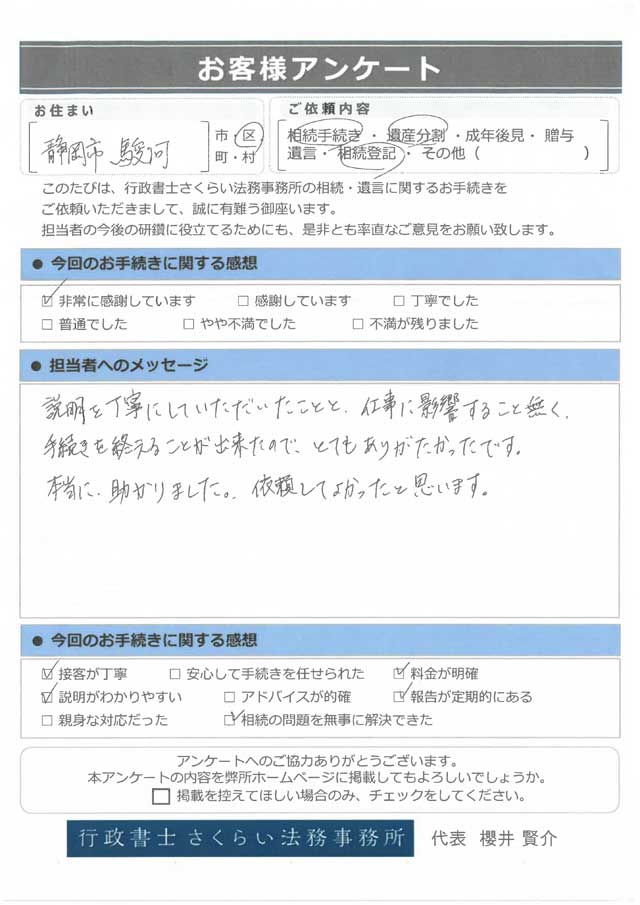 お客様アンケート
お住まい
静岡市 駿河 市・区・町・村
ご依頼内容
相続手続き・遺産分割・成年後見・贈与
遺言・相続登記・その他（ ）
このたびは、行政書士さくらい法務事務所の相続・遺言に関するお手続きを
ご依頼いただきまして、誠に有難う御座います。
担当者の今後の研鑽に役立てるためにも、是非とも率直なご意見をお願い致します。
● 今回のお手続きに関する感想
☑ 非常に感謝しています □ 感謝しています □ 丁寧でした
□ 普通でした □ やや不満でした □ 不満が残りました
● 担当者へのメッセージ
説明を丁寧にしていただいたことと、仕事に影響すること無く、
手続きを終えることが出来たので、とてもありがたかったです。
本当に、助かりました。依頼してよかったと思います。
● 今回のお手続きに関する感想
☑ 接客が丁寧 □ 安心して手続きを任せられた ☑ 料金が明確
☑ 説明がわかりやすい □ アドバイスが的確 ☑ 報告が定期的にある
□ 親身な対応だった ☑ 相続の問題を無事に解決できた
アンケートへのご協力ありがとうございます。
本アンケートの内容を弊所ホームページに掲載してもよろしいでしょうか。
□ 掲載を控えてほしい場合のみ、チェックをしてください。
行政書士 さくらい法務事務所 代表 櫻井 賢介